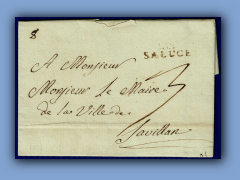 8
SALUCE
A Monsieur
Monsieur Le Maire
de la Ville de
Savillan
3